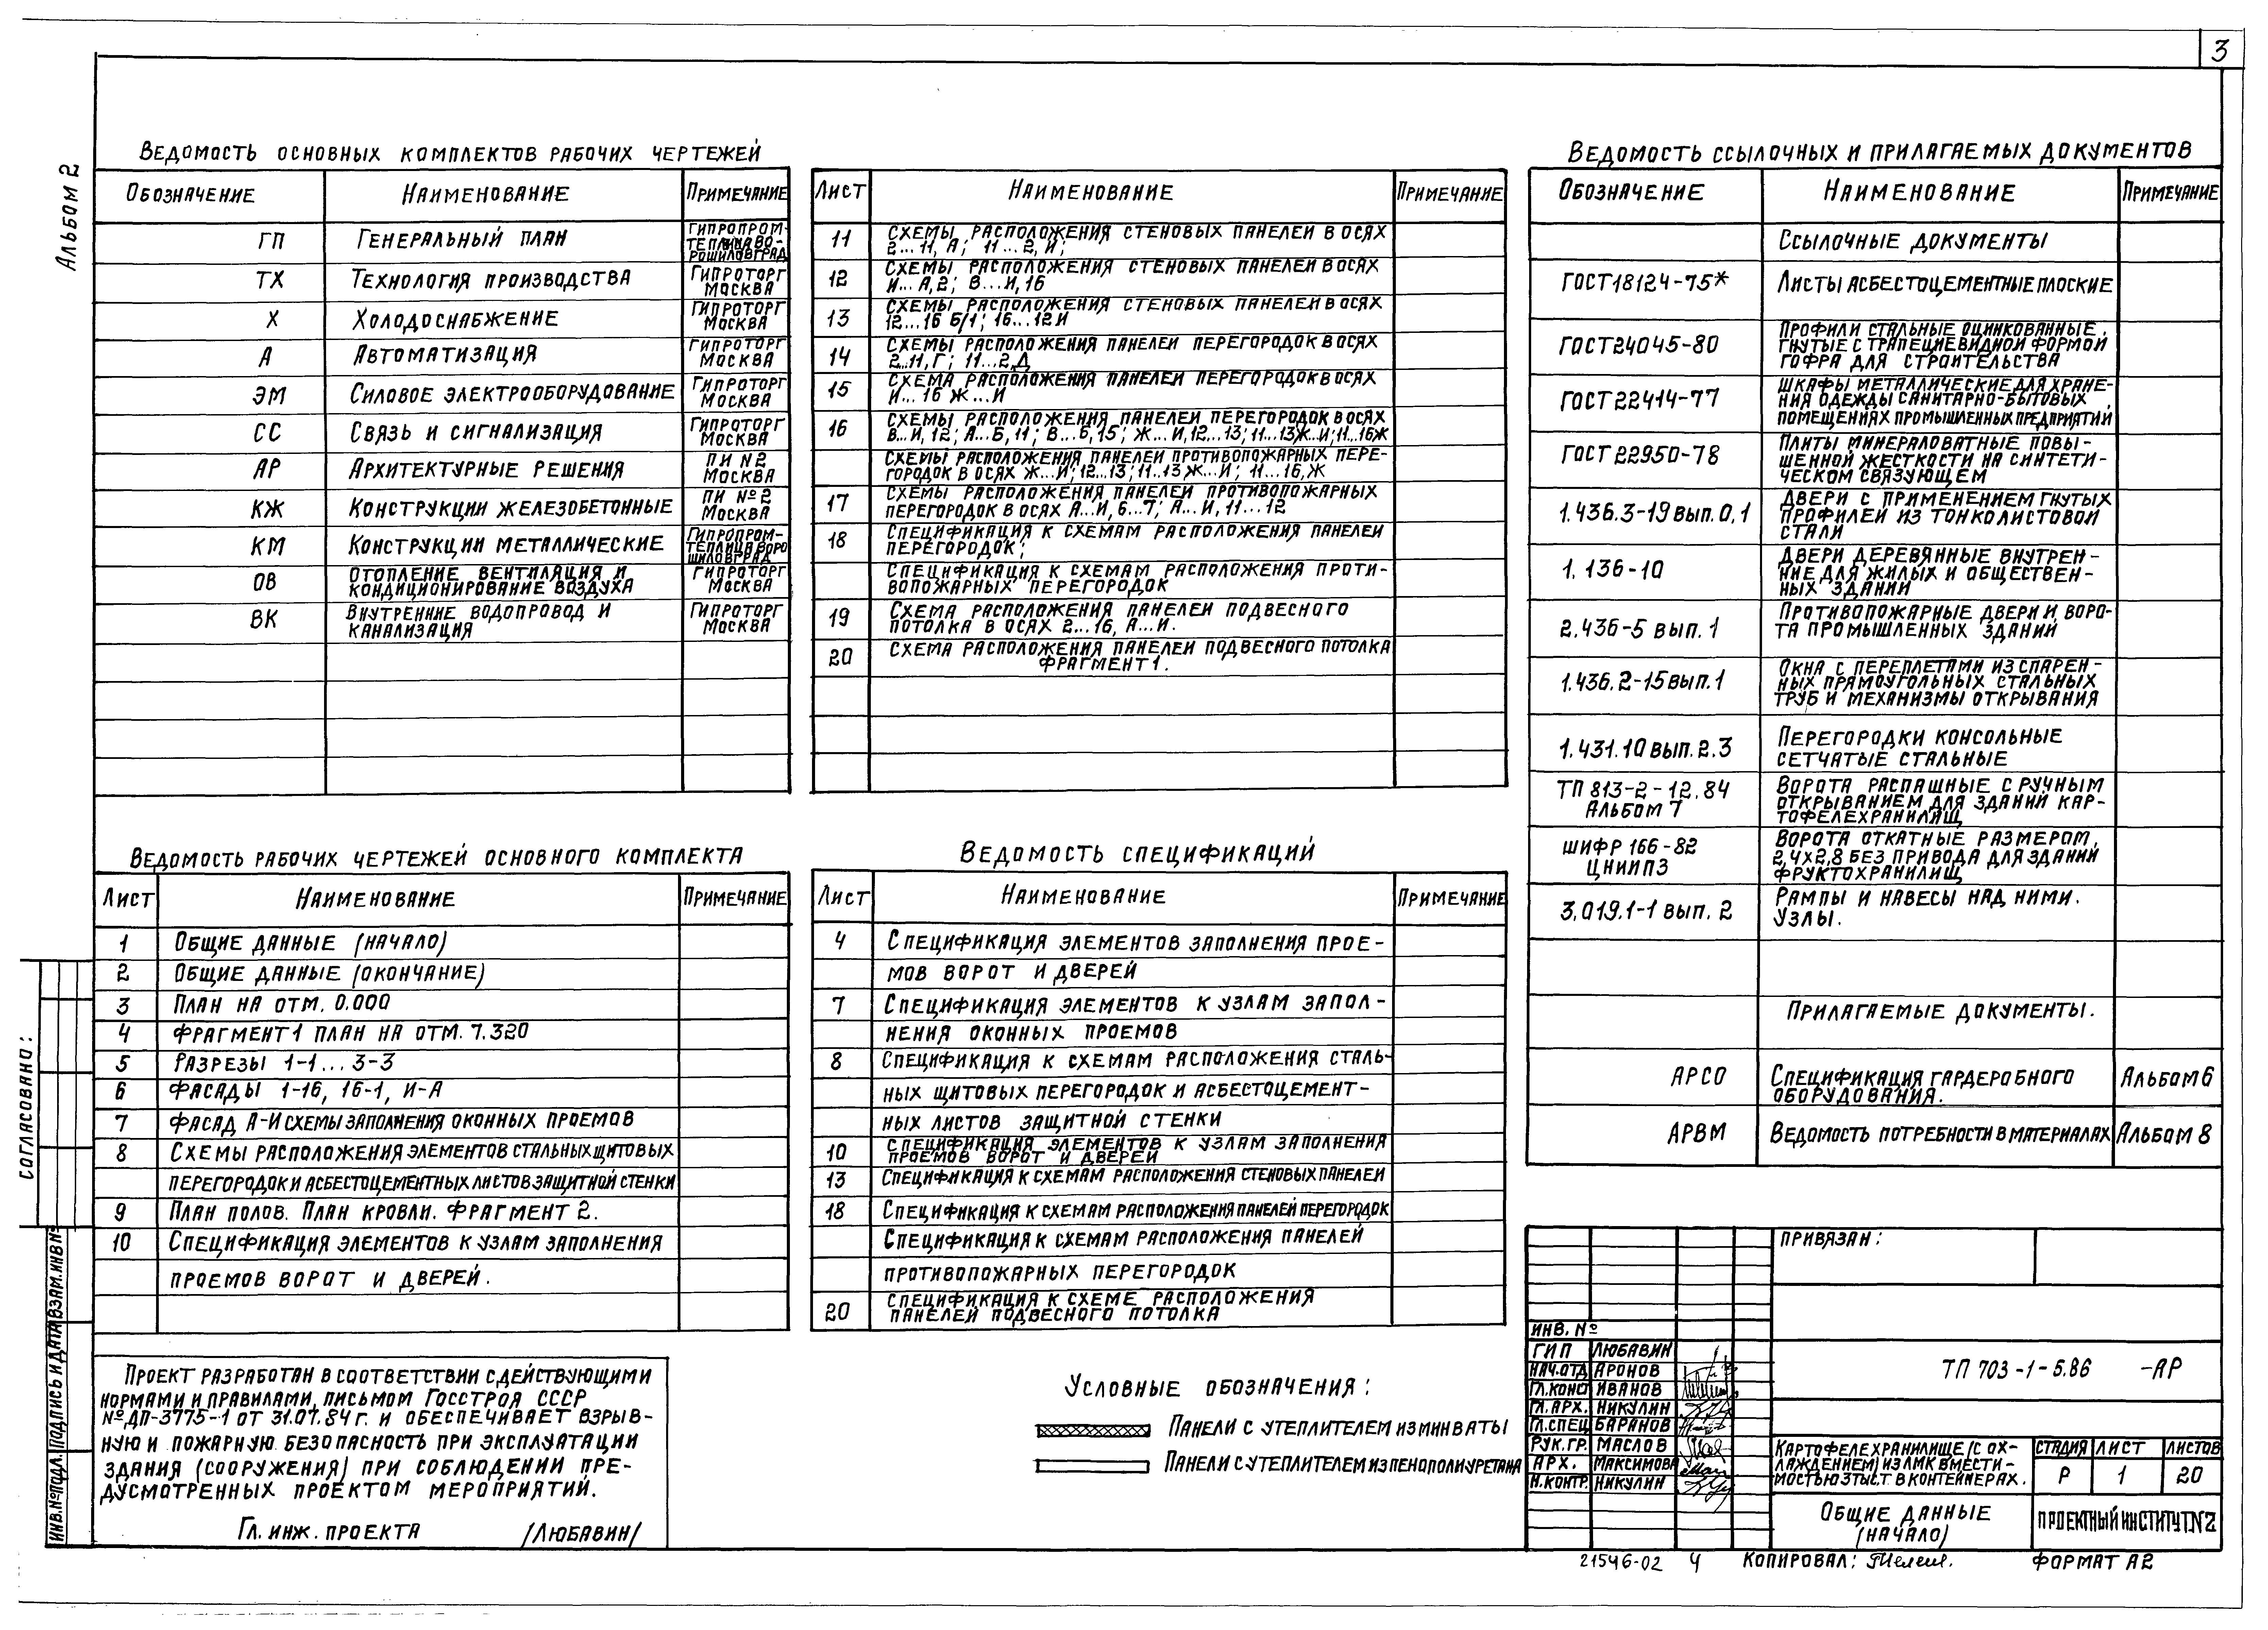 3
Альбом 2
Ведомость основных комплектов рабочих чертежей
Обозначение Наименование Примечание
ГП Генеральный план Гипропром-
теплица Во-
рошиловград
ТХ Технология производства Гипроторг
Москва
Х Холодоснабжение Гипроторг
Москва
А Автоматизация Гипроторг
Москва
ЭМ Силовое электрооборудование Гипроторг
Москва
СС Связь и сигнализация Гипроторг
Москва
АР Архитектурные решения ПИ N2
Москва
КЖ Конструкции железобетонные ПИ №2
Москва
КМ Конструкции металлические Гипропром-
теплица Воро
шиловград
ОВ Отопление вентиляция и
кондиционирование воздуха Гипроторг
Москва
ВК Внутренние водопровод и
канализация Гипроторг
Москва
Ведомость рабочих чертежей основного комплекта
Лист Наименование Примечание
1 Общие данные (начало)
2 Общие данные (окончание)
3 План на отм. 0.000
4 Фрагмент 1 план на отм. 7.320
5 Разрезы 1-1... 3-3
6 Фасады 1-16, 16-1, И-А
7 Фасад А-И схемы заполнения оконных проемов
8 Схемы расположения элементов стальных щитовых
перегородок и асбестоцементных листов защитной стенки
9 План полов. План кровли. Фрагмент 2.
10 Спецификация элементов к узлам заполнения
проемов ворот и дверей.
Проект разработан в соответствии с действующими
нормами и правилами, письмом Госстроя СССР
№ДП-3775-1 от 31.07.84г. и обеспечивает взрыв-
ную и пожарную безопасность при эксплуатации
здания (сооружения) при соблюдении пре-
дусмотренных проектом мероприятий.
Гл. инж. проекта /Любавин/
Лист Наименование Примечание
11 Схемы расположения стеновых панелей в осях
2...11, А; 11...2, И;
12 Схемы расположения стеновых панелей в осях
И...А, 2; В...И, 16
13 Схемы расположения стеновых панелей в осях
12...16 Б/1; 16...12 И
14 Схемы расположения панелей перегородок в осях
2...11, Г; 11...2, Д
15 Схема расположения панелей перегородок в осях
И...16 Ж...И
16 Схемы расположения панелей перегородок в осях
В...И, 12; А...Б, 11; В...Б, 15; Ж...И, 12...13; 11...13 Ж...И; 11...16 Ж
Схемы расположения панелей противопожарных пере-
городок в осях Ж...И; 12...13; 11..13 Ж...И; 11...16, Ж
17 Схемы расположения панелей противопожарных
перегородок в осях А...И, 6...7; А...И, 11...12
18 Спецификация к схемам расположения панелей
перегородок;
Спецификация к схемам расположения проти-
вопожарных перегородок
19 Схема расположения панелей подвесного
потолка в осях 2...16, А...И.
20 Схема расположения панелей подвесного потолка
фрагмент 1.
Ведомость спецификаций
Лист Наименование Примечание
4 Спецификация элементов заполнения прое-
мов ворот и дверей
7 Спецификация элементов к узлам запол-
нения оконных проемов
8 Спецификация к схемам расположения сталь-
ных щитовых перегородок и асбестоцемент-
ных листов защитной стенки
10 Спецификация элементов к узлам заполнения
проемов ворот и дверей
13 Спецификация к схемам расположения стеновых панелей
18 Спецификация к схемам расположения панелей перегородок
Спецификация к схемам расположения панелей
противопожарных перегородок
20 Спецификация к схеме расположения
панелей подвесного потолка
Условные обозначения:
Панели с утеплителем из минваты
Панели с утеплителем из пенополиуретана
Ведомость ссылочных и прилагаемых документов
Обозначение Наименование Примечание
Ссылочные документы
ГОСТ 18124-75* Листы асбестоцементные плоские
ГОСТ 24045-80 Профили стальные оцинкованные,
гнутые с трапециевидной формой
гофра для строительства
ГОСТ 22414-77 Шкафы металлические для хране-
ния одежды санитарно-бытовых
помещениях промышленных предприятий
ГОСТ 22950-78 Плиты минераловатные повы-
шенной жесткости на синтети-
ческом связующем
1.436.3-19 вып. 0,1 Двери с применением гнутых
профилей из тонколистовой
стали
1. 136-10 Двери деревянные внутрен-
ние для жилых и обществен-
ных зданий
2.436-5 вып. 1 Противопожарные двери и воро-
та промышленных зданий
1.436.2-15 вып. 1 Окна с переплетами из спарен-
ных прямоугольных стальных
труб и механизмы открывания
1.431.10 вып. 2.3 Перегородки консольные
сетчатые стальные
ТП 813-2-12.84
Альбом 7 Ворота распашные с ручным
открыванием для зданий кар-
тофелехранилищ
шифр 166-82
ЦНИИПЗ Ворота откатные размером,
2,4х2,8 без привода для зданий
фруктохранилищ
3.019.1-1 вып. 2 Рампы и навесы над ними.
Узлы.
Прилагаемые документы.
АРСО Спецификация гардеробного
оборудования. Альбом 6
АРВМ Ведомость потребности в материалах Альбом 8
Привязан:
Инв. №
ГИП Любавин
Нач.отд Аронов
Гл.конс Иванов
Гл.арх. Никулин
Гл.спец Баранов
Рук.гр. Маслов
Арх. Максимова
Н.контр. Никулин
ТП 703-1-5.86 -АР
Картофелехранилище (с ох-
лаждением) из ЛМК вмести-
мостью 3 тыс.т в контейнерах.
Стадия Лист Листов
Р 1 20
Общие данные
(начало)
Проектный институт N2
21546-02 4 Копировал: Формат А2
Согласовано:
Взам.инв№
Подпись и дата
Инв.№подл.